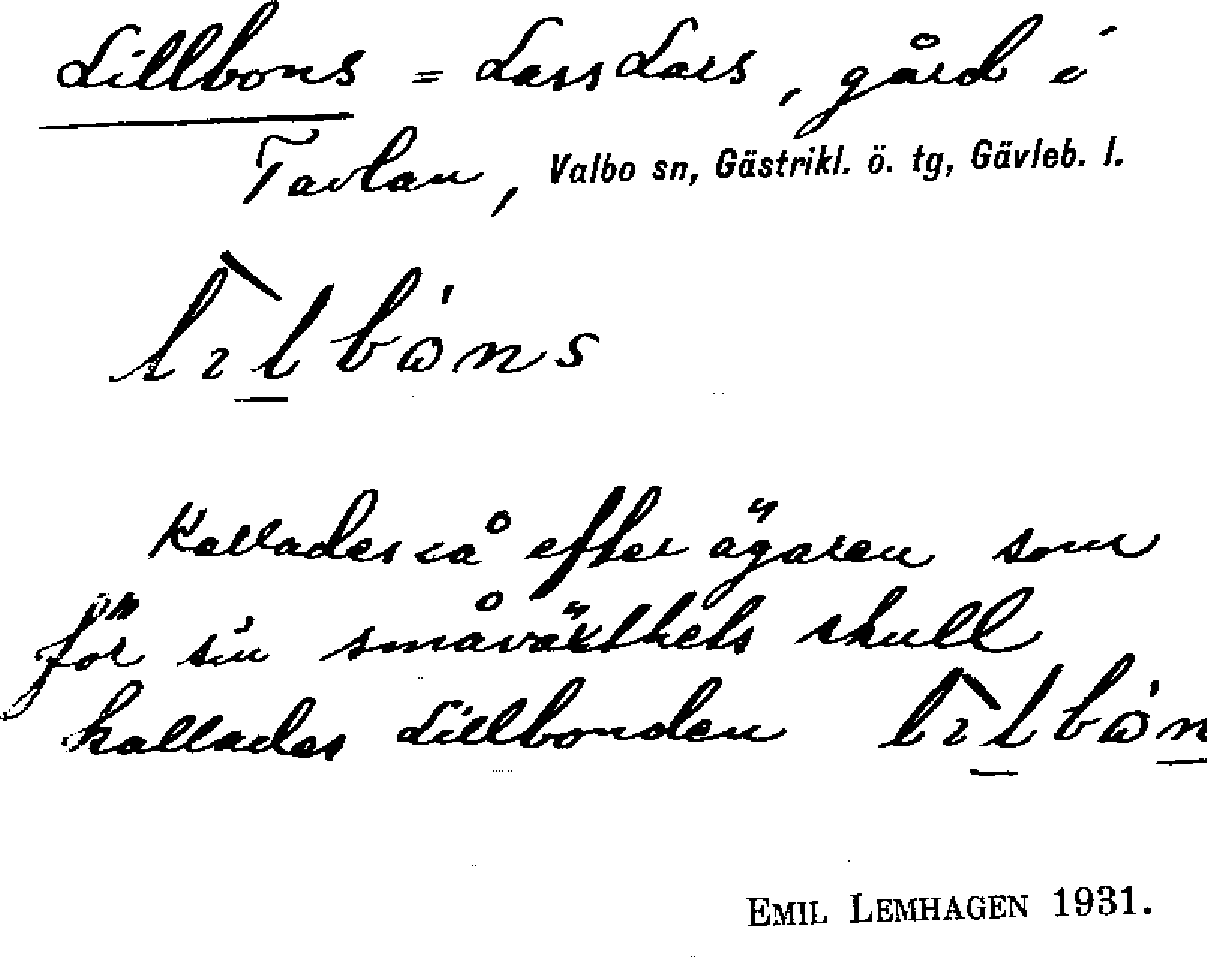 Lillbons = Lass Lars, gård i
Tavlan, Valbo sn, Gästrikl. ö. tg, Gävleb. l.
Kallades så efter ägaren som
för sin småväxthets skull
kallades Lillbonden
EMIL LEMHAGEN 1931.